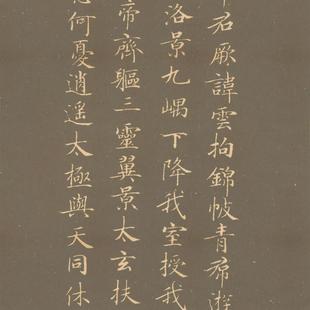 君厥諱雲拘錦帔青帬遊
洛景九嵎下降我室授我
帝齊驅三靈翼景太玄扶
何憂逍遥太極與天同休